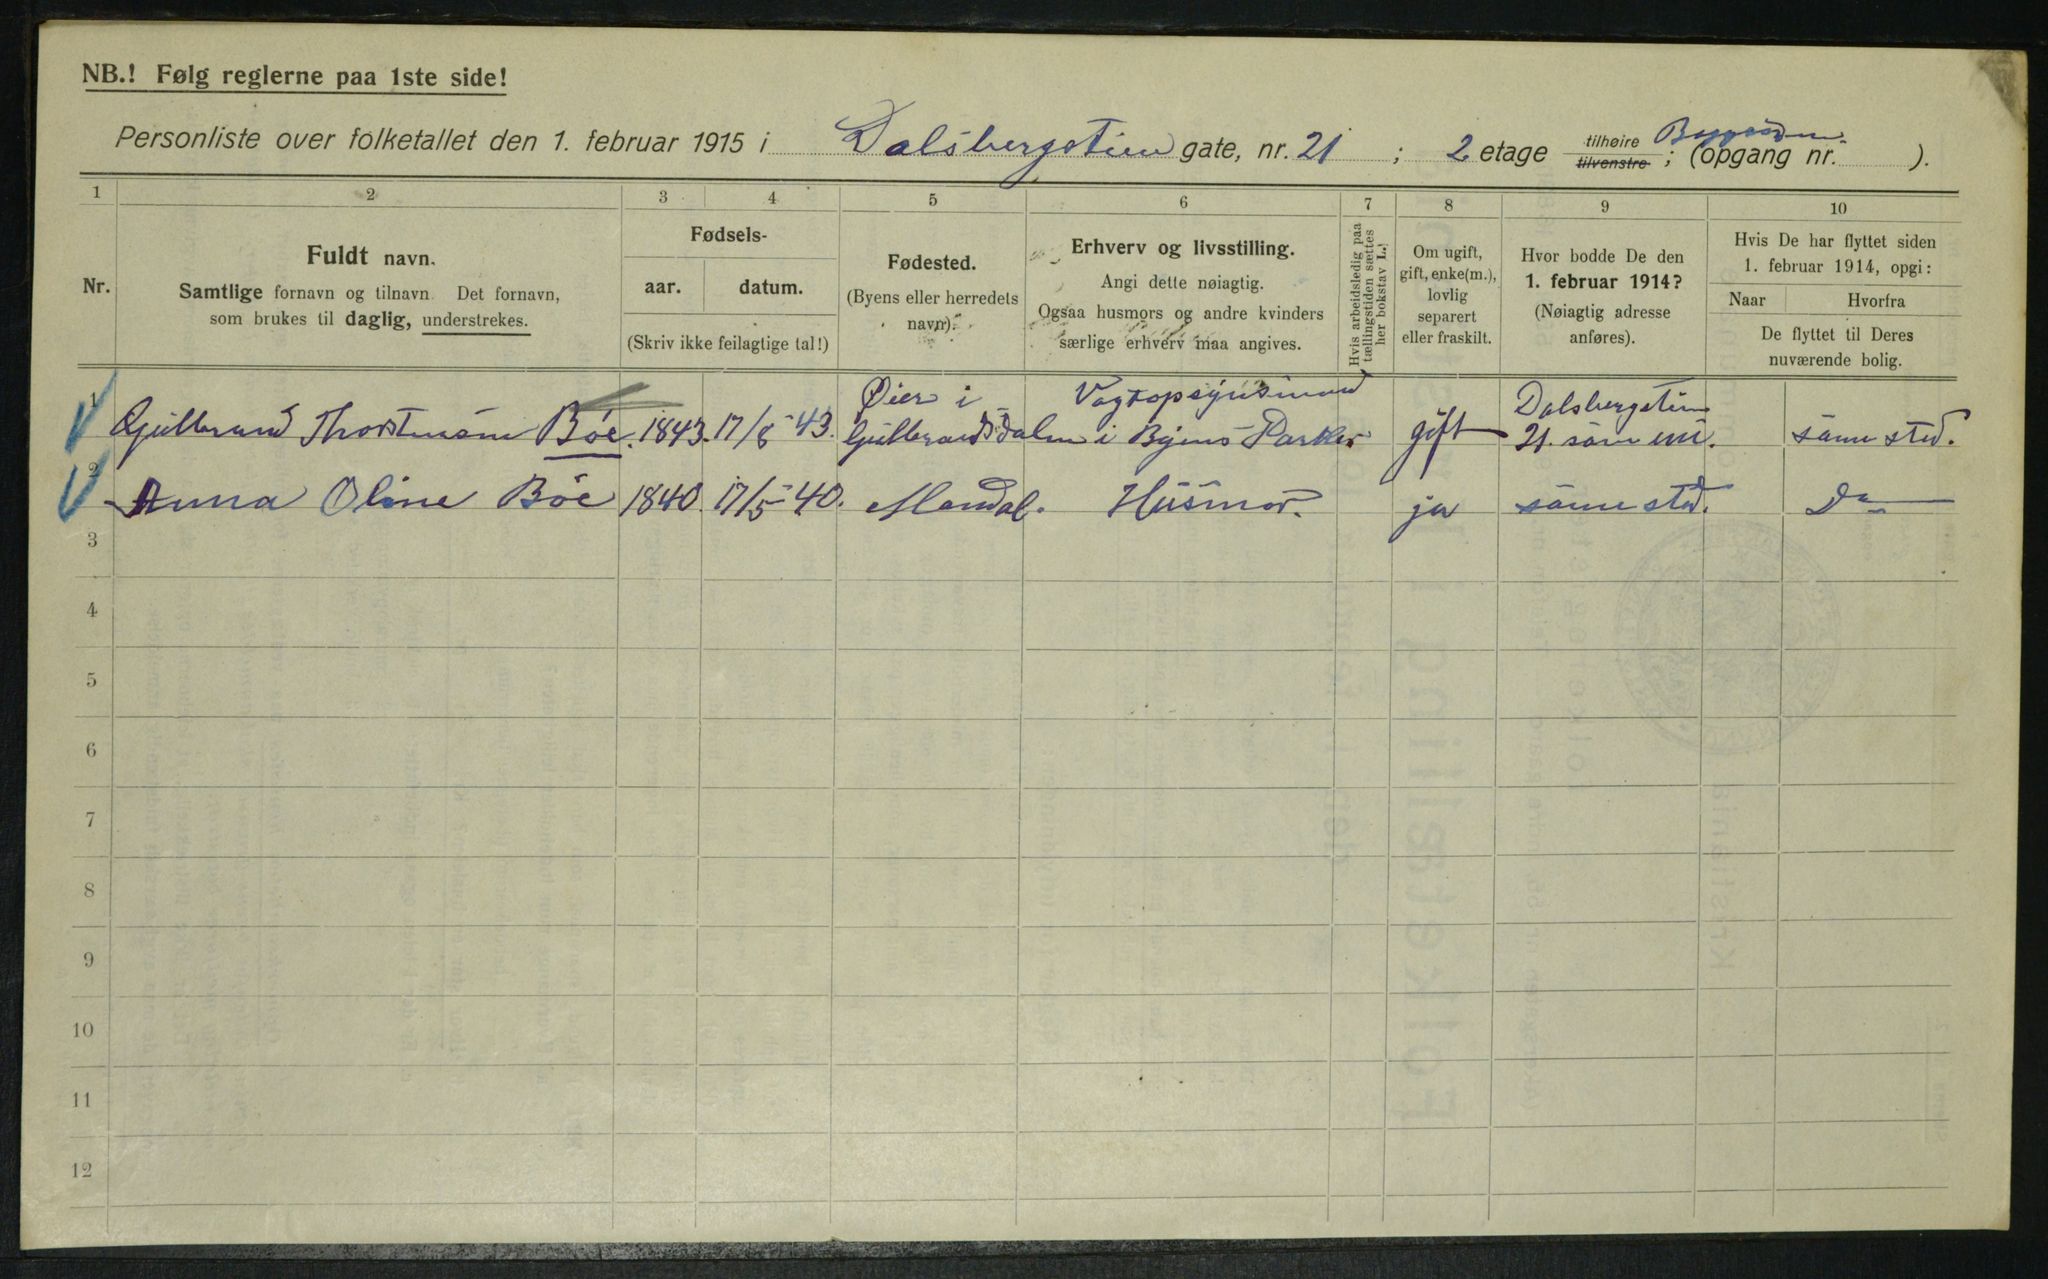 NB.! Følg reglerne paa 1ste side!
Personliste over folketallet den 1. februar 1915 i Dalsbergstien gate, nr. 21 ; 2 etage tilhøire tilvenstre ; (opgang nr. ).
1 2 3 4 5 6 7 8 9 10
Nr.
Fuldt navn.
Samtlige fornavn og tilnavn. Det fornavn,
som brukes til daglig, understrekes.
Fødsels-
aar. datum.
(Skriv ikke feilagtige tal!)
Fødested.
(Byens eller herredets
navn).
Erhverv og livsstilling.
Angi dette nøiagtig.
Ogsaa husmors og andre kvinders
særlige erhverv maa angives.
Hvis arbeidsledig paa
tællingstiden sættes
her bokstav L.!
Om ugift,
gift, enke(m.),
lovlig
separert
eller fraskilt.
Hvor bodde De den
1. februar 1914?
(Nøiagtig adresse
anføres).
Hvis De har flyttet siden
1. februar 1914, opgi:
Naar Hvorfra
De flyttet til Deres
nuværende bolig.
Øier i Vagtopsynsmand Dalsbergstien
1 Gulbrand Thorstensen Böe. 1843. 17/8 43. Gulbrandsdalen i Byens Parker gift 21. samme sted.
2 Anna Oline Böe 1840. 17/5 40. Mandal. Husmor. ja samme sted. Do
3
4
5
6
7
8
9
10
11
12